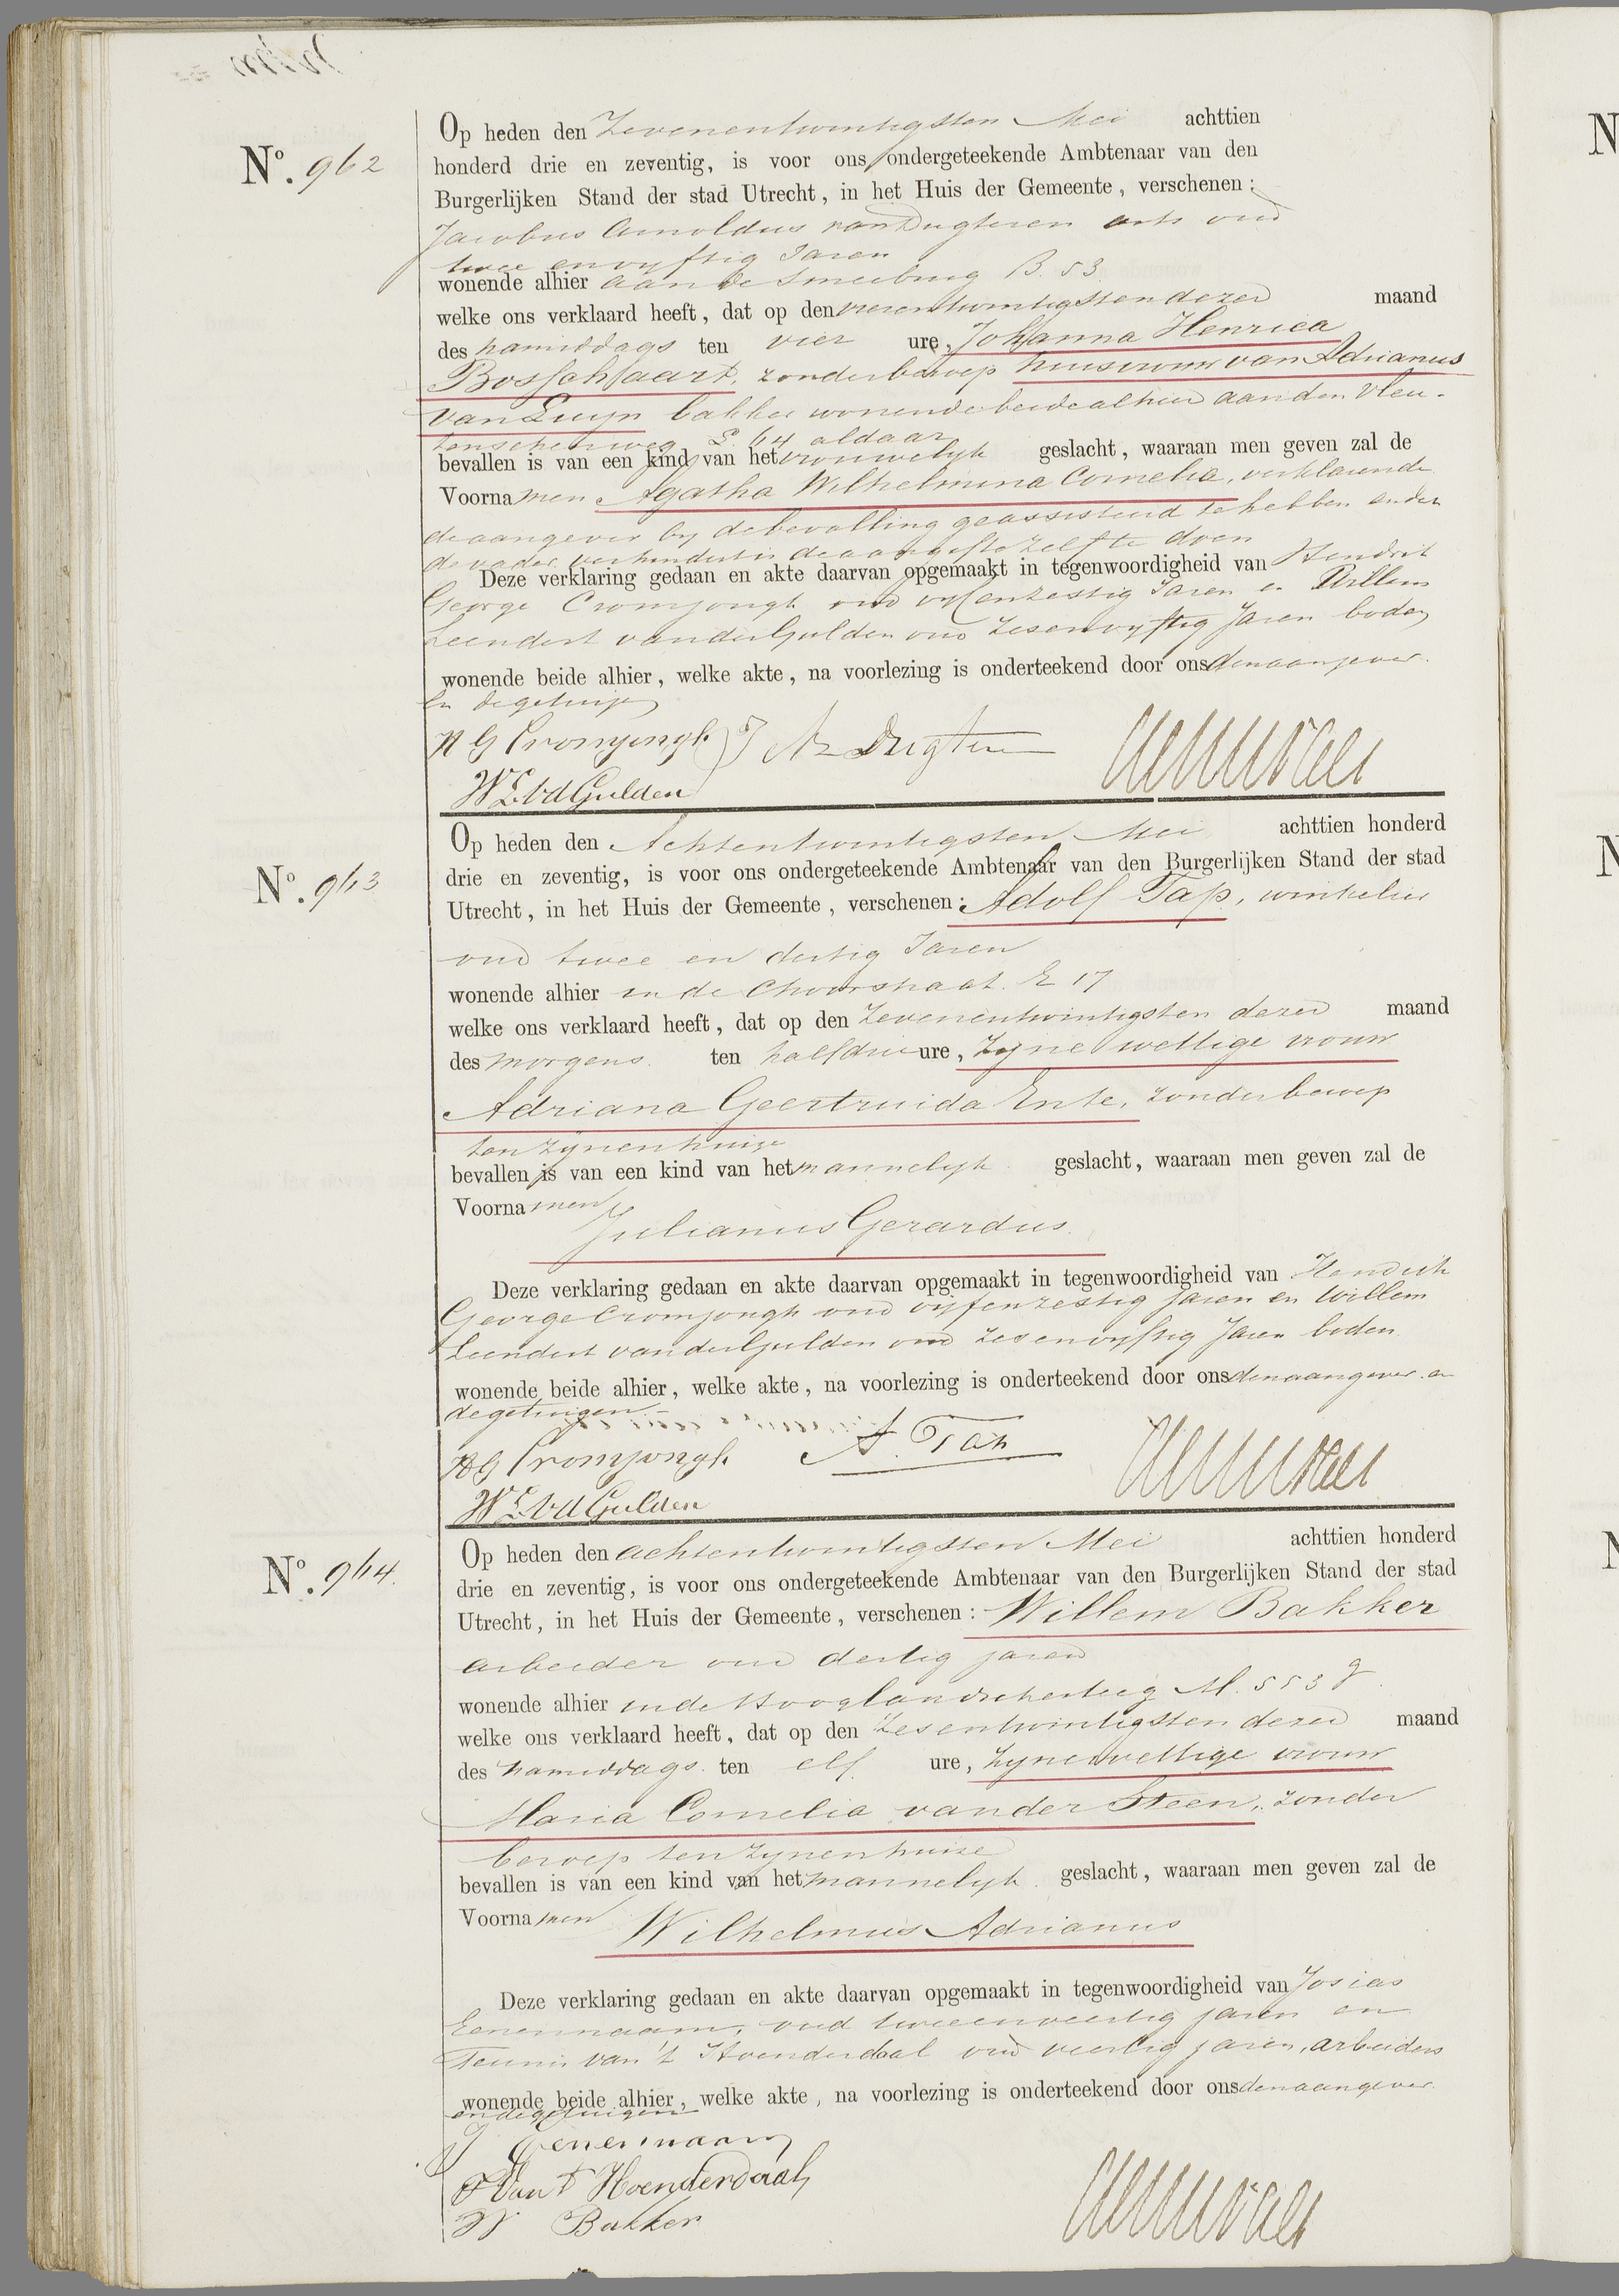 Nº. 962
Op heden den Zevenentwintigsten Mei achttien
honderd drie en zeventig, is voor ons ondergeteekende Ambtenaar van den
Burgerlijken Stand der stad Utrecht, in het Huis der Gemeente, verschenen:
Jacobus Arnoldus van Dugteren arts oud
twee envyftig Jaren
wonende alhier aan de Smeebrug B. 53
welke ons verklaard heeft, dat op den vierentwintigsten dezer maand
des namiddags ten vier ure, Johanna Henrica
Bosschaart, zonderberoep huisvrouw van Adrianus
van Luyn bakker wonende beide alhier aan den Vleu-
tenschenweg L. 64 aldaar
bevallen is van een kind van het vrouwelyk geslacht, waaraan men geven zal de
Voornamen Agatha Wilhelmina Cornelia, verklarende
de aangever by de bevalling geassisteerd te hebben en dat
de vader verhinderd is de aangifte zelf te doen
Deze verklaring gedaan en akte daarvan opgemaakt in tegenwoordigheid van Hendrik
George Cromjongh oud vyfenzestig Jaren en Willem
Leendert vanderGulden oud zesenvyftig Jaren boden
wonende beide alhier, welke akte, na voorlezing is onderteekend door ons den aangever
en de getuigen
HG Cromjongh J A v Dugteren
W L vd Gulden
Nº. 963
Op heden den Achtentwintigsten Mei achttien honderd
drie en zeventig, is voor ons ondergeteekende Ambtenaar van den Burgerlijken Stand der stad
Utrecht, in het Huis der Gemeente, verschenen: Adolf Tap, winkelier
oud twee en dertig Jaren
wonende alhier in de Choorstraat. E 17
welke ons verklaard heeft, dat op den Zevenentwintigsten dezer maand
des morgens. ten halfdrie ure, Zyne wettige vrouw
Adriana Geertruida Ente, zonder beroep
ten zynenhuize
bevallen is van een kind van het mannelyk geslacht, waaraan men geven zal de
Voornamen
Julianus Gerardus.
Deze verklaring gedaan en akte daarvan opgemaakt in tegenwoordigheid van Hendrik
George Cromjongh oud vyfenzestig Jaren en Willem
Leendert vanderGulden oud zesenvyftig Jaren boden
wonende beide alhier, welke akte, na voorlezing is onderteekend door ons den aangever en
de getuigen
HG Cromjongh A. Tap
W L vd Gulden
Nº. 964.
Op heden den achtentwintigsten Mei achttien honderd
drie en zeventig, is voor ons ondergeteekende Ambtenaar van den Burgerlijken Stand der stad
Utrecht, in het Huis der Gemeente, verschenen: Willem Bakker
arbeider oud dertig jaren
wonende alhier in de Hooglandschesteeg M. 553 g
welke ons verklaard heeft, dat op den Zesentwintigsten dezer maand
des namiddags. ten elf ure, Zyne wettige vrouw
Maria Cornelia van der Steen, zonder
beroep ten zynenhuize
bevallen is van een kind van het mannelyk geslacht, waaraan men geven zal de
Voornamen Wilhelmus Adrianus
Deze verklaring gedaan en akte daarvan opgemaakt in tegenwoordigheid van Josias
Eenennaam, oud tweeenveertig jaren en
Teunis van 't Hoenderdaal oud veertig jaren, arbeiders
wonende beide alhier, welke akte, na voorlezing is onderteekend door ons den aangever
en de getuigen
J Eenennaam
T Van t Hoenderdaal
W Bakker